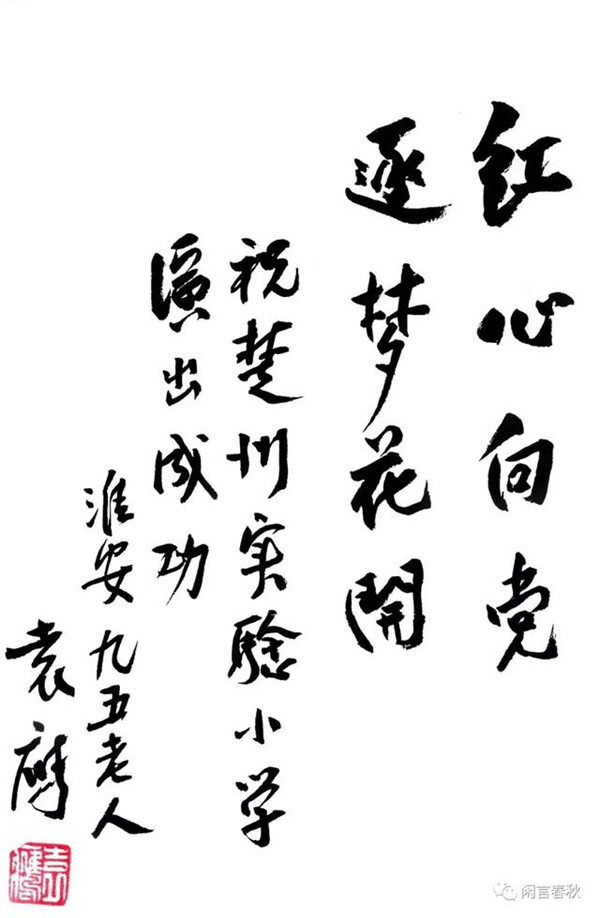 红心向党
逐梦花開
祝楚州实驗小学
演出成功
淮安九五老人
袁鹰
袁鷹
闲言春秋